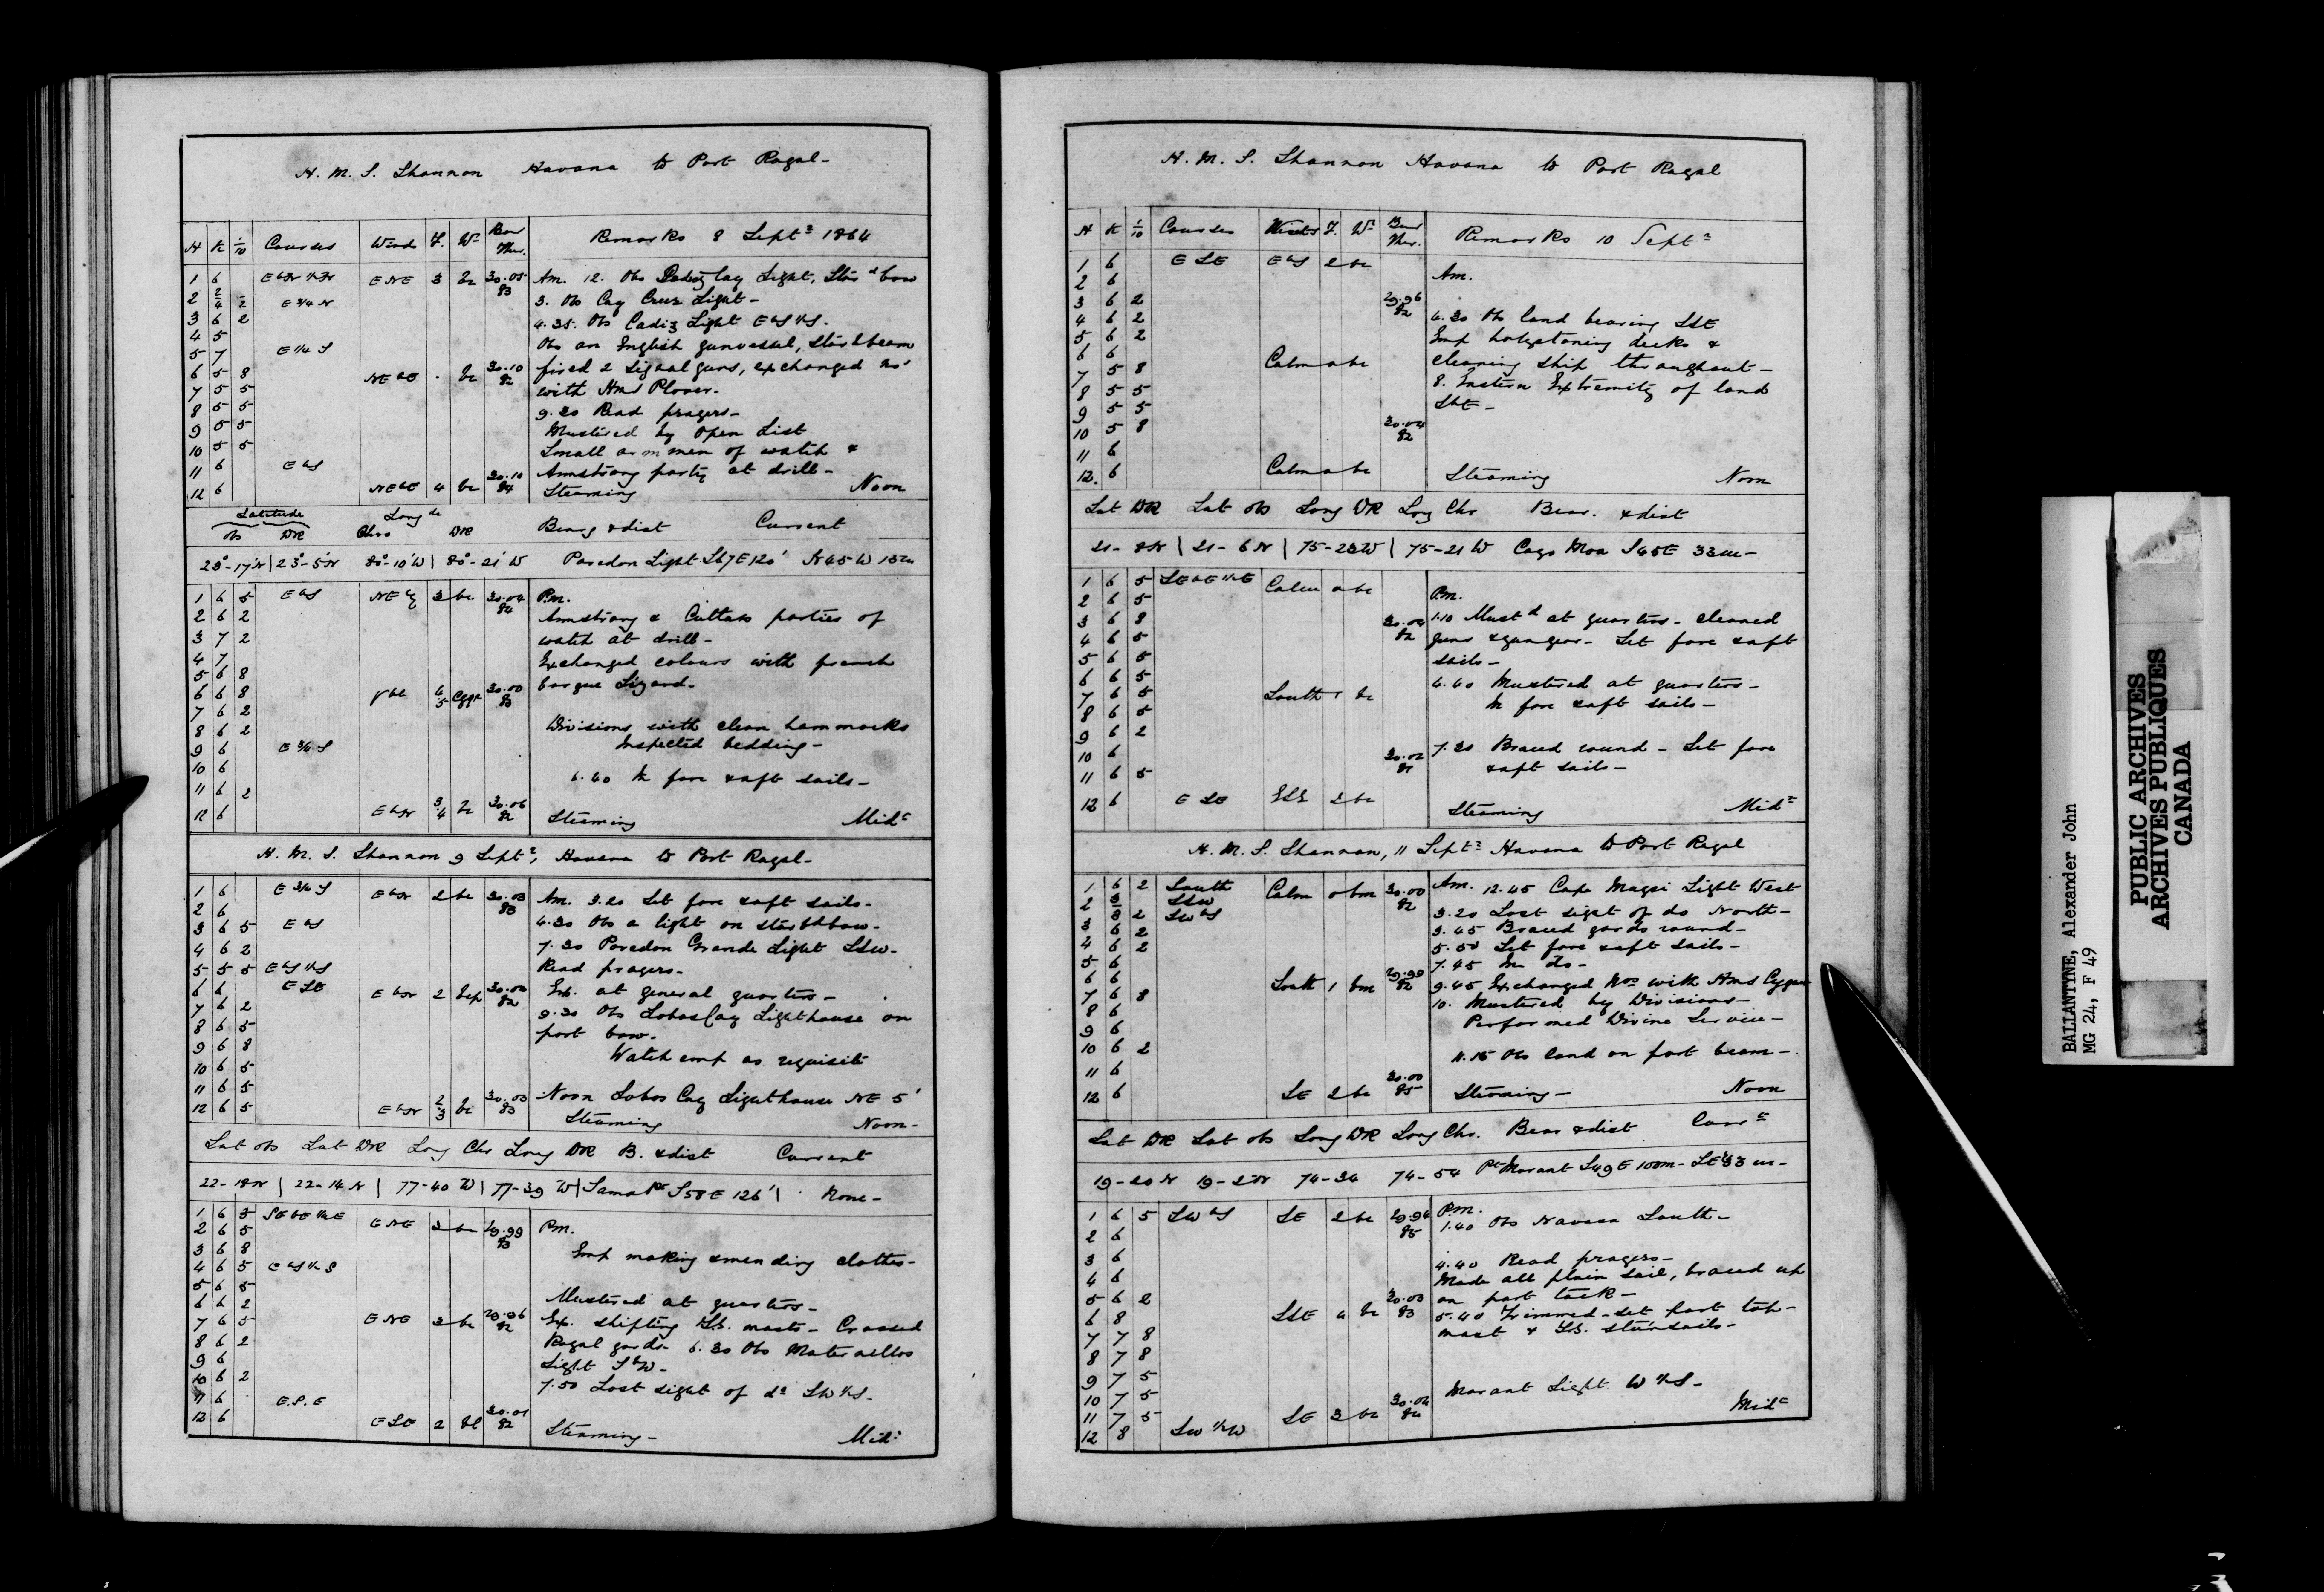 H. M. S. Shannon Havana to Port Royal-
H K 1/10 Courses Wind F. Wr Bar Ther. Remarks 8 Septr 1864
1 6 EbN 1/2 N ENE 3 bc 30.05 83 Am. 12. Obs Cay Light, Starbd bow
2 E 3/4 N 3. Obs Cay Cruz Light-
3 6 2 4.35. Obs Cadiz Light EbS 1/2 S.
4 5 Obs an English gunvessel, Starbd beam
5 7 E 1/4 S
6 5 8 NEbE . bc 30.10 82 fired 2 signal guns, exchanged nos
7 5 5 with Hms Plover.
8 5 5 9.20 Read prayers-
9 5 5 Mustered by Open List
10 5 5 Small arm men of watch &
11 6 EbS Armstrong party at drill-
12 6 NEbE 4 bc 30.10 84 Steaming Noon
Latitude Longde
Obs DR Chro DR Bearg & dist Current
23°-17'N 23°-5'N 80°-10'W 80°-21'W Paredon Light S67E 120' N45W 18m
1 6 5 EbS NEly 3 bc 30.04 84 P.m.
2 6 2 Armstrong & Cutlass parties of
3 7 2 watch at drill-
4 7 Exchanged colours with french
5 6 8 barque Lizard.
6 6 8 Vble 4/5 30.00 83
7 6 2 Divisions with clean hammocks
8 6 2 Inspected bedding-
9 6 E 3/4 S
10 6 6.40 In fore & aft sails-
11 6 2
12 6 EbN 3/4 bc 30.06 82 Steaming Midt
H. M. S. Shannon 9 Septr, Havana to Port Royal-
1 6 E 3/4 S EbN 2 bc 30.03 83 Am. 3.20 Set fore & aft sails-
2 6 4.30 Obs a light on starbd bow-
3 6 5 EbS
4 6 2 7.30 Paredon Grande Light SSW-
5 5 5 EbS 1/2 S Read prayers-
6 6 ESE EbN 2 30.00 82 Ex. at general quarters-
7 6 2 9.30 Obs Lobos Cay Lighthouse on
8 6 5 port bow.
9 6 8 Watch emp as requisite
10 6 5
11 6 5 Noon Lobos Cay Lighthouse NE 5'
12 6 5 EbN 2/3 bc 30.03 83 Steaming Noon-
Lat obs Lat DR Long Chr Long DR B. & dist Current
22-18N 22-14N 77-40W 77-39W S58E 126' None-
1 6 5 SEbE 1/2 E ENE 3 bc 29.99 83 P.m.
2 6 5
3 6 8 Emp making & mending clothes-
4 6 5 EbS 1/2 S
5 6 5
6 6 2 Mustered at quarters-
7 6 5 ENE 3 bc 29.96 82 Ex. shifting masts- Crossed
8 6 2 Royal yards- 6.30 Obs
9 6 Light SbW-
10 6 2 7.50 Lost sight of do SW 1/2 S-
11 6 E.S.E
12 6 ESE 2 30.01 82 Steaming- Midt
H. M. S. Shannon Havana to Port Royal
H K 1/10 Courses Winds F. Wr Bar Ther. Remarks 10 Septr
1 6 ESE EbS 2 bc Am.
2 6
3 6 2 29.96 82
4 6 2 4.30 Obs land bearing SSE
5 6 2 Emp holystoning decks &
6 6 Calm o bc cleaning ship throughout-
7 5 8
8 5 5 8. Eastern Extremity of land
9 5 5 SbE-
10 5 8 30.04 82
11 6
12. 6 Calm o bc Steaming Noon
Lat DR Lat obs Long DR Long Chr Bear. & dist
21-8N 21-6N 75-23W 75-21W Cayo Moa S45E 33m-
1 6 5 SEbE 1/2 E Calm o bc P.m.
2 6 5
3 6 8 82 1.10 Mustd at quarters- cleaned
4 6 5 guns & gungear- Set fore & aft
5 6 5 sails-
6 6 5 4.40 Mustered at quarters-
7 6 5 South 1 bc In fore & aft sails-
8 6 5
9 6 2
10 6 30.02 81 7.30 Braced round- Set fore
11 6 5 & aft sails-
12 6 ESE SSE 2 bc Steaming Midt
H. M. S. Shannon, 11 Septr Havana to Port Royal
1 6 2 South Calm o bm 30.00 82 Am. 12.45 Cape Maysi Light West
2 3 SSW 3.20 Lost sight of do North-
3 2 SWbS 3.45 Braced yards round-
3 6 2 5.50 Set fore & aft sails-
4 6 2
5 6 7.45 In do-
6 6 South 1 bm 29.98 82 9.45 Exchanged Nos with Hms Cygnet
7 6 8 10. Mustered by Divisions-
8 6 Performed Divine Service-
9 6
10 6 2 11.15 Obs land on port beam-
11 6
12 6 SE 2 bc 30.00 85 Steaming- Noon
Lat DR Lat obs Long DR Long Chr. Bear & dist Currt
19-20N 19-2N 74-34 74-54 Pt Morant S49E 100m- 33m-
1 6 5 SWbS SE 2 bc 29.96 85 P.m.
2 6 1.40 Obs Navasa South-
3 6 4.40 Read prayers-
4 6 Made all plain sail, braced up
5 6 2 30.03 83 on port tack-
6 8 SSE 4 bc 5.40 Trimmed- set port top-
7 7 8 mast & stunsails-
8 7 8
9 7 5
10 7 5 Morant Light W 1/2 S-
11 7 5 SE 3 bc 30.04 84 Midt
12 8 SW 1/2 W
BALLANTYNE, Alexander John
MG 24, F 49
PUBLIC ARCHIVES
ARCHIVES PUBLIQUES
CANADA